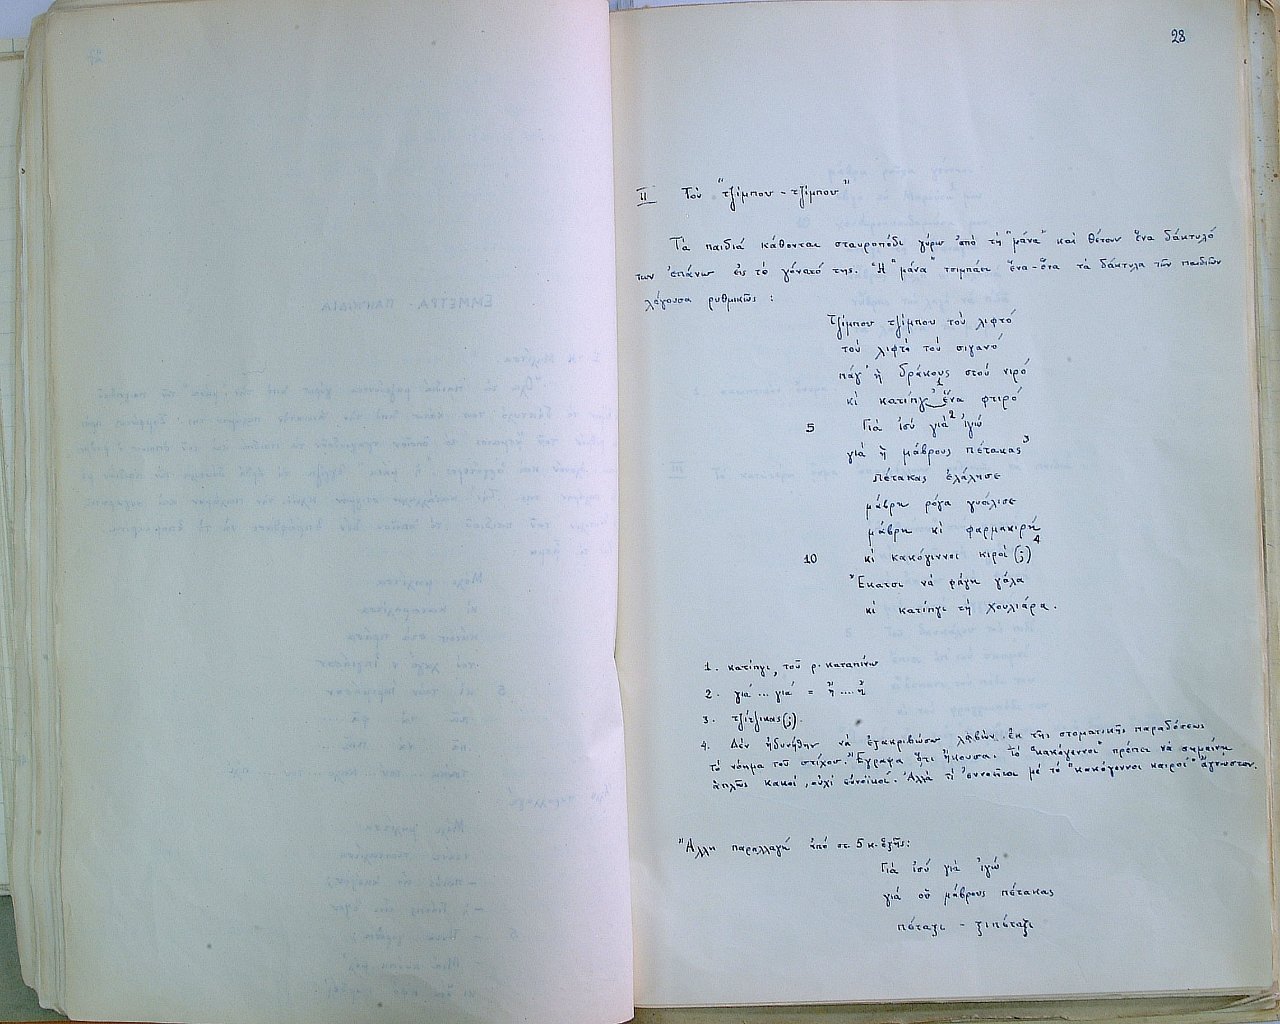 28
II Τοῦ "τζίμπου - τζίμπου"
Τὰ παιδιά κάθονται σταυροπόδι γύρω ἀπό τή "μάνα" καί θέτουν ἕνα δάκτυλό
των ἐπάνω εἰς τό γόνατό της. Ἡ "μάνα" τσιμπάει ἕνα-ἕνα τά δάκτυλα τῶν παιδιῶν
λέγουσα ρυθμικῶς :
Τζίμπου τζίμπου τού λιφτό
τού λιφτό τού σιγανό
πάγ' ἡ δράκους στού νιρό
κί κατίπγι¹ ἕνα φτιρό
5 Γιά ἰσύ γιά² ἰγώ
γιά ἢ μάβρους πέτακας³
πέτακας ἐλάλησε
μάβρη ρόγα γυάλισε
μάβρη κί φαρμακιρή
10 κί κακόγιννοι κιροί (;)⁴
Ἔκατσι νά φάγη γάλα
κί κατίπγι τή χουλιάρα.
1. κατίπγι, τοῦ ρ. καταπίνω
2. γιά ... γιά = ἤ .... ἤ
3. τζίτζικας (;).
4. Δέν ἠδυνήθην νά ἐξακριβώσω λαβών ἐκ τῆς στοματικῆς παραδόσεως
τό νόημα τοῦ στίχου. Ἔγραψα ὅ,τι ἤκουσα. Τό "κακόγεννοι" πρέπει νά σημαίνη
ἁπλῶς κακοί, οὐχί εὐνοϊκοί. Ἀλλά τί ἐννοεῖται μέ τό "κακόγεννοι καιροί" ἄγνωστον.
Ἄλλη παραλλαγή ἀπό στ. 5 κ. ἑξῆς:
Γιά ἰσύ γιά ἰγώ
γιά οὑ μάβρους πέτακας
πέταξι - ξιπέταξι